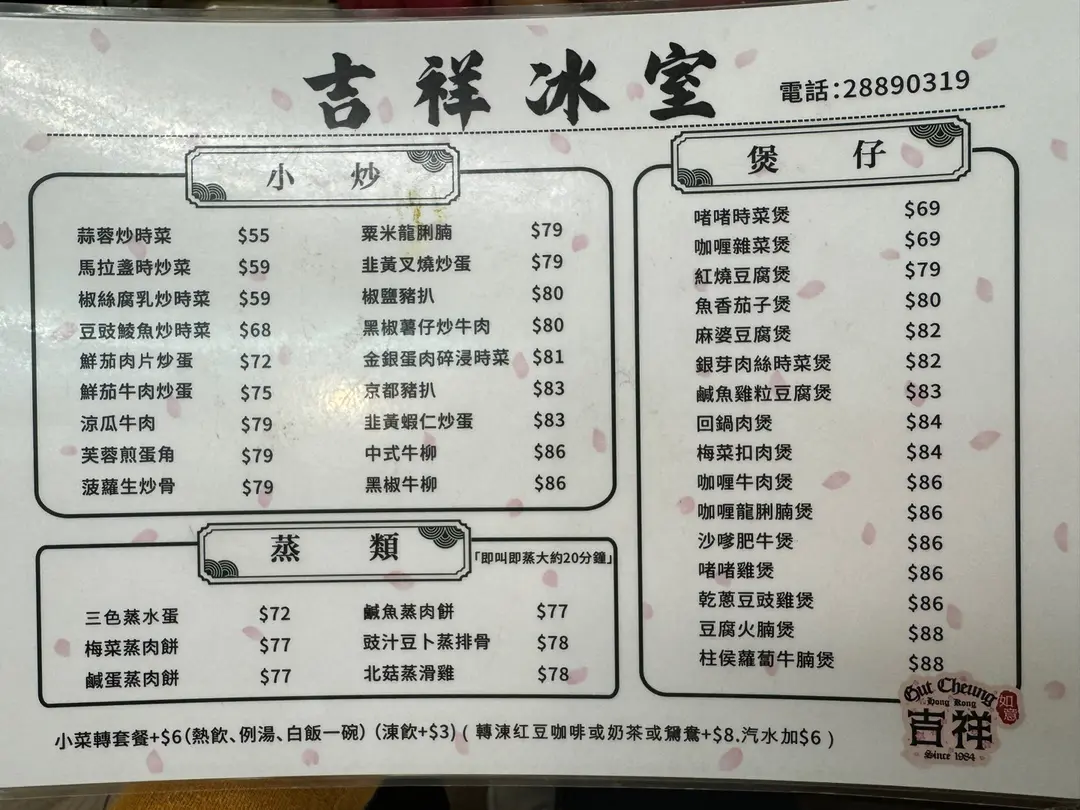 吉祥冰室
電話:28890319
小炒
蒜蓉炒時菜 $55
馬拉盞時炒菜 $59
椒絲腐乳炒時菜 $59
豆豉鯪魚炒時菜 $68
鮮茄肉片炒蛋 $72
鮮茄牛肉炒蛋 $75
涼瓜牛肉 $79
芙蓉煎蛋角 $79
菠蘿生炒骨 $79
粟米龍脷腩 $79
韭黃叉燒炒蛋 $79
椒鹽豬扒 $80
黑椒薯仔炒牛肉 $80
金銀蛋肉碎浸時菜 $81
京都豬扒 $83
韭黃蝦仁炒蛋 $83
中式牛柳 $86
黑椒牛柳 $86
蒸類
「即叫即蒸大約20分鐘」
三色蒸水蛋 $72
梅菜蒸肉餅 $77
鹹蛋蒸肉餅 $77
鹹魚蒸肉餅 $77
豉汁豆卜蒸排骨 $78
北菇蒸滑雞 $78
煲仔
啫啫時菜煲 $69
咖喱雜菜煲 $69
紅燒豆腐煲 $79
魚香茄子煲 $80
麻婆豆腐煲 $82
銀芽肉絲時菜煲 $82
鹹魚雞粒豆腐煲 $83
回鍋肉煲 $84
梅菜扣肉煲 $84
咖喱牛肉煲 $86
咖喱龍脷腩煲 $86
沙嗲肥牛煲 $86
啫啫雞煲 $86
乾蔥豆豉雞煲 $86
豆腐火腩煲 $88
柱侯蘿蔔牛腩煲 $88
小菜轉套餐+$6(熱飲、例湯、白飯一碗) (凍飲+$3) ( 轉凍红豆咖啡或奶茶或鴛鴦+$8.汽水加$6 )
Gut Cheung
Hong Kong
如意
吉祥
Since 1984